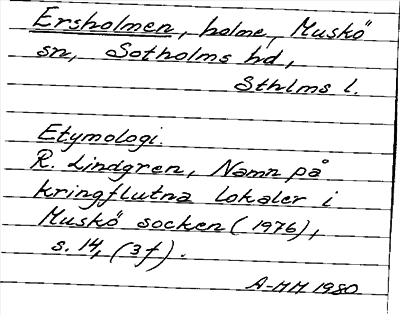 Ersholmen, holme, Muskö
sn, Sotholms hd,
Sthlms l.
Etymologi.
R. Lindgren, Namn på
kringflutna lokaler i
Muskö socken (1976),
s. 14, (3f).
A-MM 1980